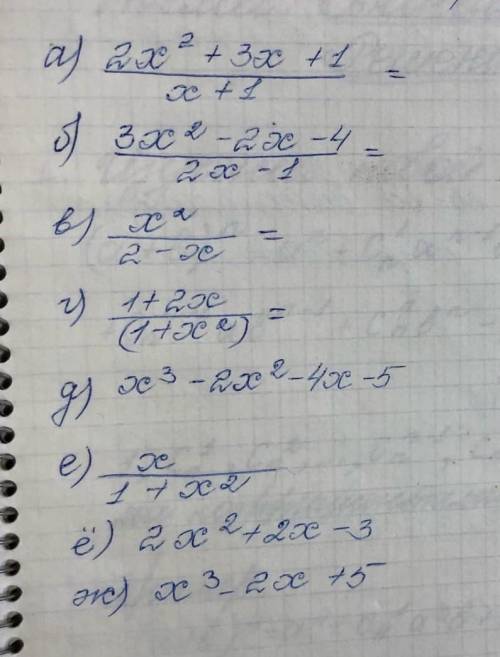 а) (2x² + 3x + 1)/(x + 1) =
б) (3x² - 2x - 4)/(2x - 1) =
в) x²/(2 - x) =
г) (1 + 2x)/((1 + x²)) =
д) x³ - 2x² - 4x - 5
е) x/(1 + x²)
ё) 2x² + 2x - 3
ж) x³ - 2x + 5